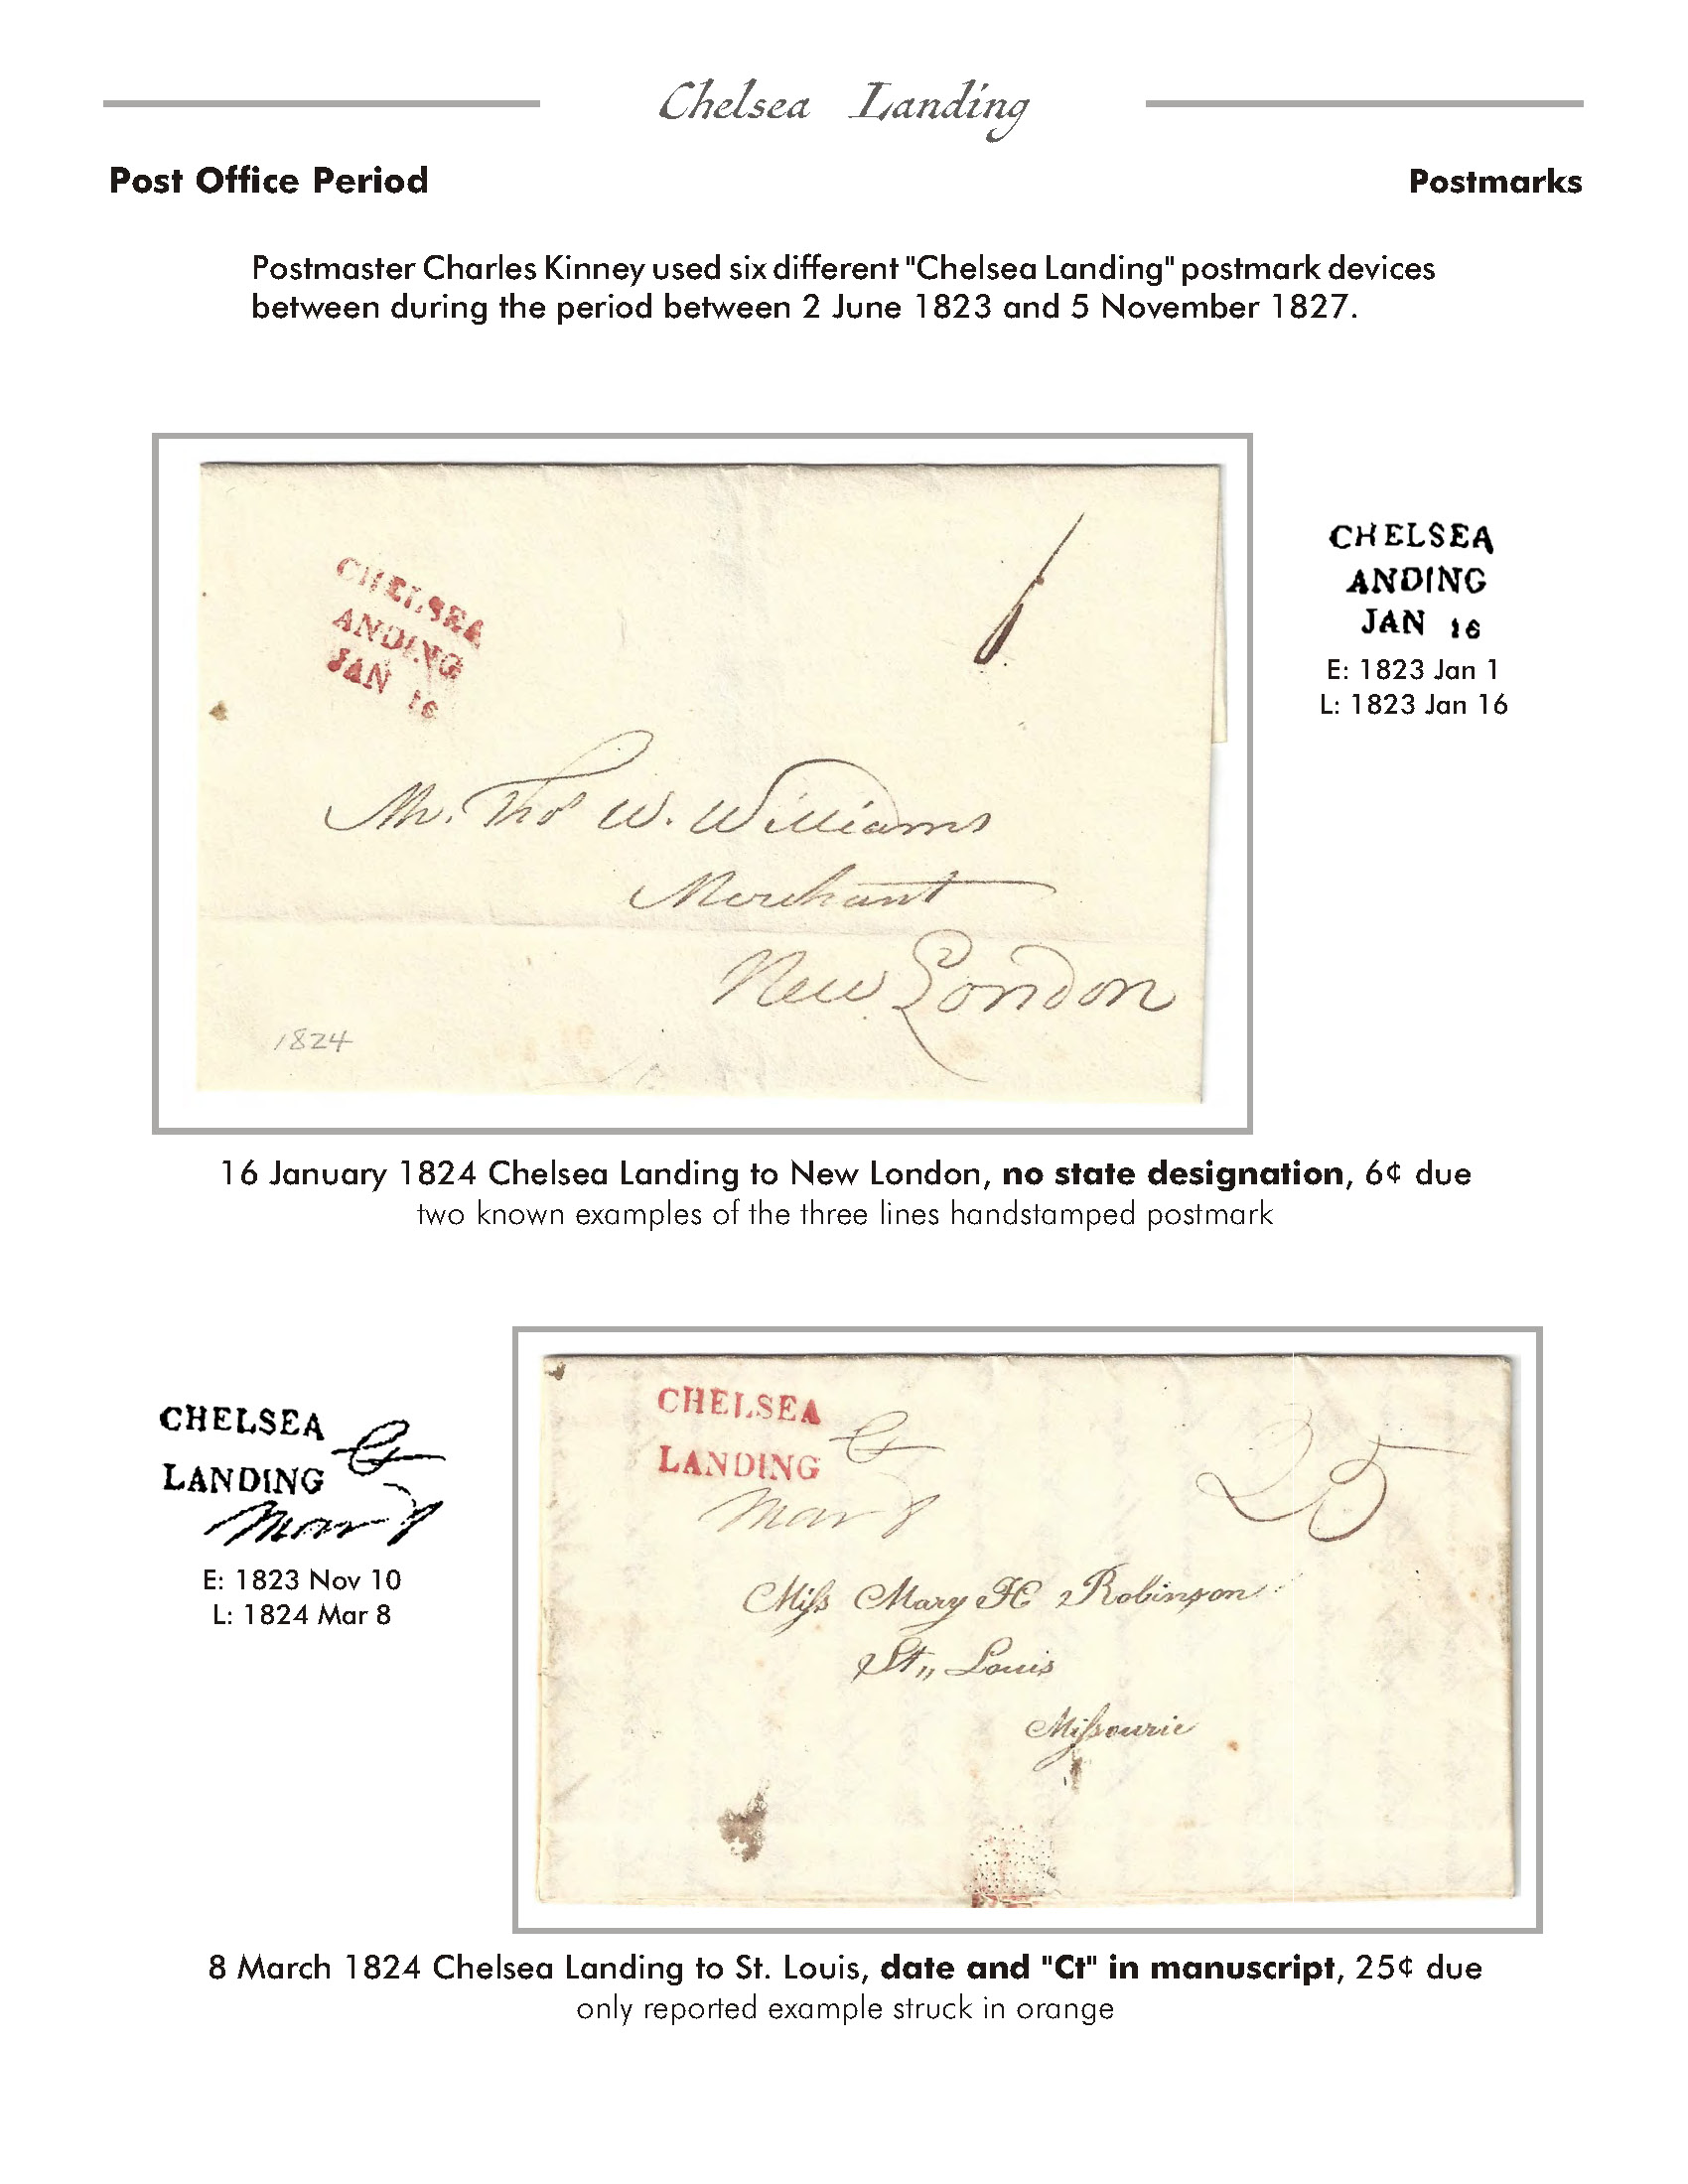 Chelsea Landing
Post Office Period
Postmarks
Postmaster Charles Kinney used six different "Chelsea Landing" postmark devices
between during the period between 2 June 1823 and 5 November 1827.
CHELSEA
ANDING
JAN 16
6
Mr. Thos W. Williams
Merchant
New London
1824
CHELSEA
ANDING
JAN 16
E: 1823 Jan 1
L: 1823 Jan 16
16 January 1824 Chelsea Landing to New London, no state designation, 6¢ due
two known examples of the three lines handstamped postmark
CHELSEA
LANDING Ct
Mar 8
E: 1823 Nov 10
L: 1824 Mar 8
CHELSEA
LANDING Ct
Mar 8
25
Miſs Mary H Robinson
St,, Louis
Miſsourie
8 March 1824 Chelsea Landing to St. Louis, date and "Ct" in manuscript, 25¢ due
only reported example struck in orange